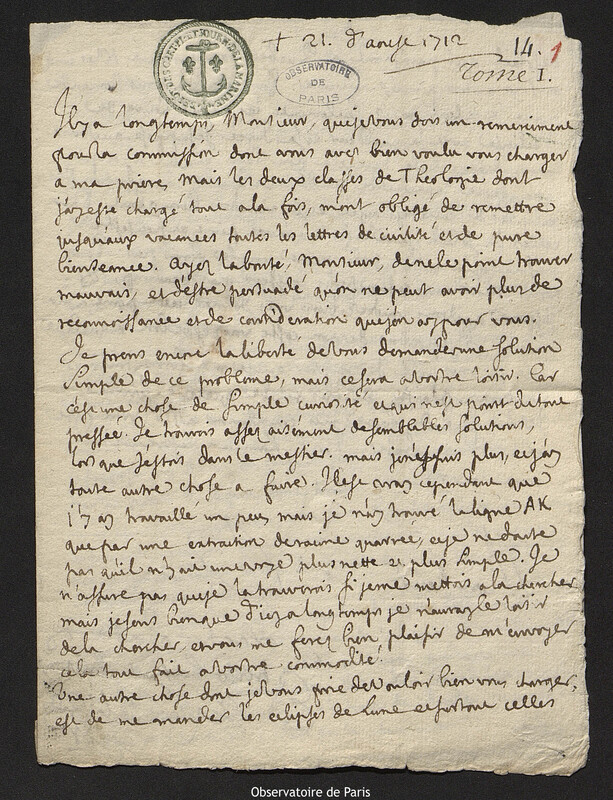 + 21. d'aouse 1712
14. 1
Tome I.
DES CARTES ET JOURN. DE LA MARINE
OBSERVATOIRE
DE
PARIS
Il y a longtemps, Monsieur, que je vous dois un remerciment
pour la commission donc vous avez bien voulu vous charger
a ma priere, mais les deux classes de Theologie dont
j'ay esté chargé tout a la fois, m'ont obligé de remettre
jusqu'aux vacances toutes les lettres de civilité et de pure
bienseance. Ayez la bonté, Monsieur, de ne le point trouver
mauvais, et d'estre persuadé qu'on ne peut avoir plus de
reconnoissance et de consideration que j'en ay pour vous.
Je prens encore la liberté de vous demander une solution
simple de ce probleme, mais ce sera a vostre loisir. Car
c'est une chose de simple curiosité et qui n'est point du tout
pressée. Je trouvois assez aisément de semblables solutions,
lors que j'estois dans le mestier. mais je n'en suis plus, et j'ay
toute autre chose a faire. Il est vray cependant que
j'y ay travaillé un peu, mais je n'ay trouvé la ligne AK
que par une extraction de racine quarrée, et je ne doute
pas qu'il n'y ait une voye plus nette et plus simple. Je
n'assure pas que je la trouverois si je me mettois a la chercher
mais je sens bien que d'icy a longtemps je n'auray le loisir
de la chercher, et vous me ferez bien plaisir de m'envoyer
cela tout fait a vostre commodité.
Une autre chose dont je vous prie de vouloir bien vous charger,
est de me mander les eclipses de Lune et surtout celles
Observatoire de Paris